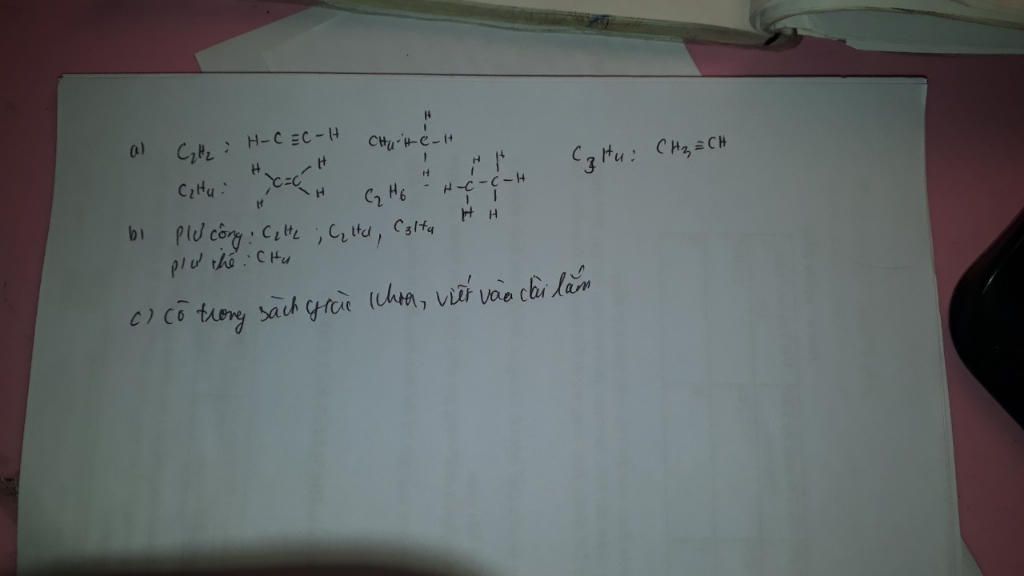 a) C2H2 : H-C≡C-H CH4 : H-C-H C3H4 : CH3≡CH
C2H4 : C=C C2H6 - H-C-C-H
b) plư công : C2H2 ; C2H4, C3H4
plư thế : CH4
c) Có trong sách giáo khoa, viết vào dài lắm